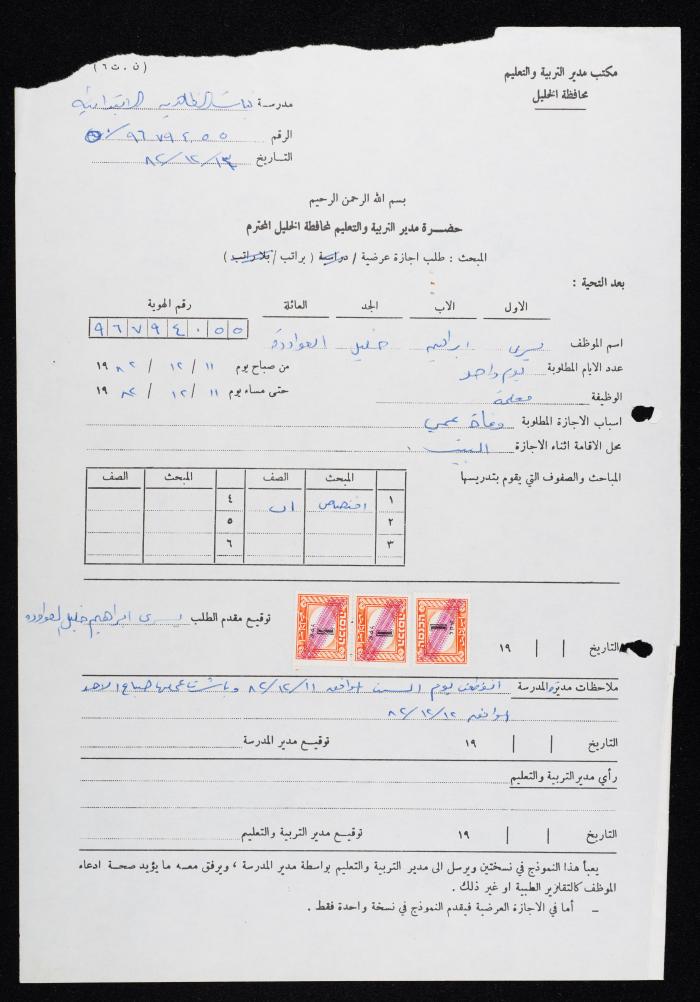 (ن . ت ٦)
مكتب مدير التربية والتعليم
محافظة الخليل
مدرسة بنات الظاهرية الابتدائية
الرقم ٩٦٧٩٤٠٥٥
التاريخ ٨٢/١٢/١٣
بسم الله الرحمن الرحيم
حضرة مدير التربية والتعليم لمحافظة الخليل المحترم
المبحث : طلب اجازة عرضية / دراسية ( براتب / بلا راتب )
بعد التحية :
الاول الاب الجد العائلة رقم الهوية
٩٦٧٩٤٠٥٥
اسم الموظف يسرى ابراهيم خليل العواودة
عدد الايام المطلوبة يوم واحد من صباح يوم ١١ / ١٢ / ١٩٨٢
الوظيفة معلمة حتى مساء يوم ١١ / ١٢ / ١٩٨٢
اسباب الاجازة المطلوبة وفاة عمي
محل الاقامة اثناء الاجازة البيت .
المباحث والصفوف التي يقوم بتدريسها
المبحث الصف المبحث الصف
١ ٤
٢ ٥
٣ ٦
توقيع مقدم الطلب يسرى ابراهيم خليل العواودة
التاريخ / / ١٩
ملاحظات مديرة المدرسة يوم السبت الموافق ٨٢/١٢/١١ وباشرت عملها صباح الاحد
الموافق ٨٢/١٢/١٢
التاريخ / / ١٩ توقيع مدير المدرسة
رأي مدير التربية والتعليم
التاريخ / / ١٩ توقيع مدير التربية والتعليم
يعبأ هذا النموذج في نسختين ويرسل الى مدير التربية والتعليم بواسطة مدير المدرسة ، ويرفق معه ما يؤيد صحة ادعاء
الموظف كالتقارير الطبية او غير ذلك .
– أما في الاجازة العرضية فيقدم النموذج في نسخة واحدة فقط .